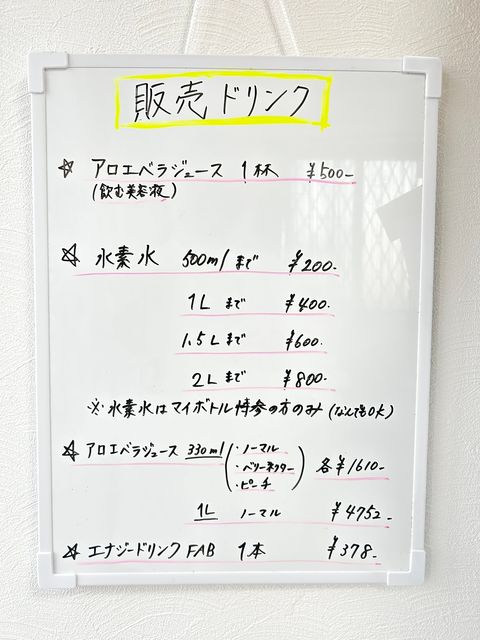 販売ドリンク
☆ アロエベラジュース 1杯 ¥500-
(飲む美容液)
☆ 水素水 500ml まで ¥200-
1L まで ¥400-
1.5L まで ¥600-
2L まで ¥800-
※ 水素水はマイボトル持参の方のみ (なんでもOK)
☆ アロエベラジュース 330ml (・ノーマル ・ベリーネクター ・ピーチ) 各¥1610-
1L ノーマル ¥4752-
☆ エナジードリンク FAB 1本 ¥378-